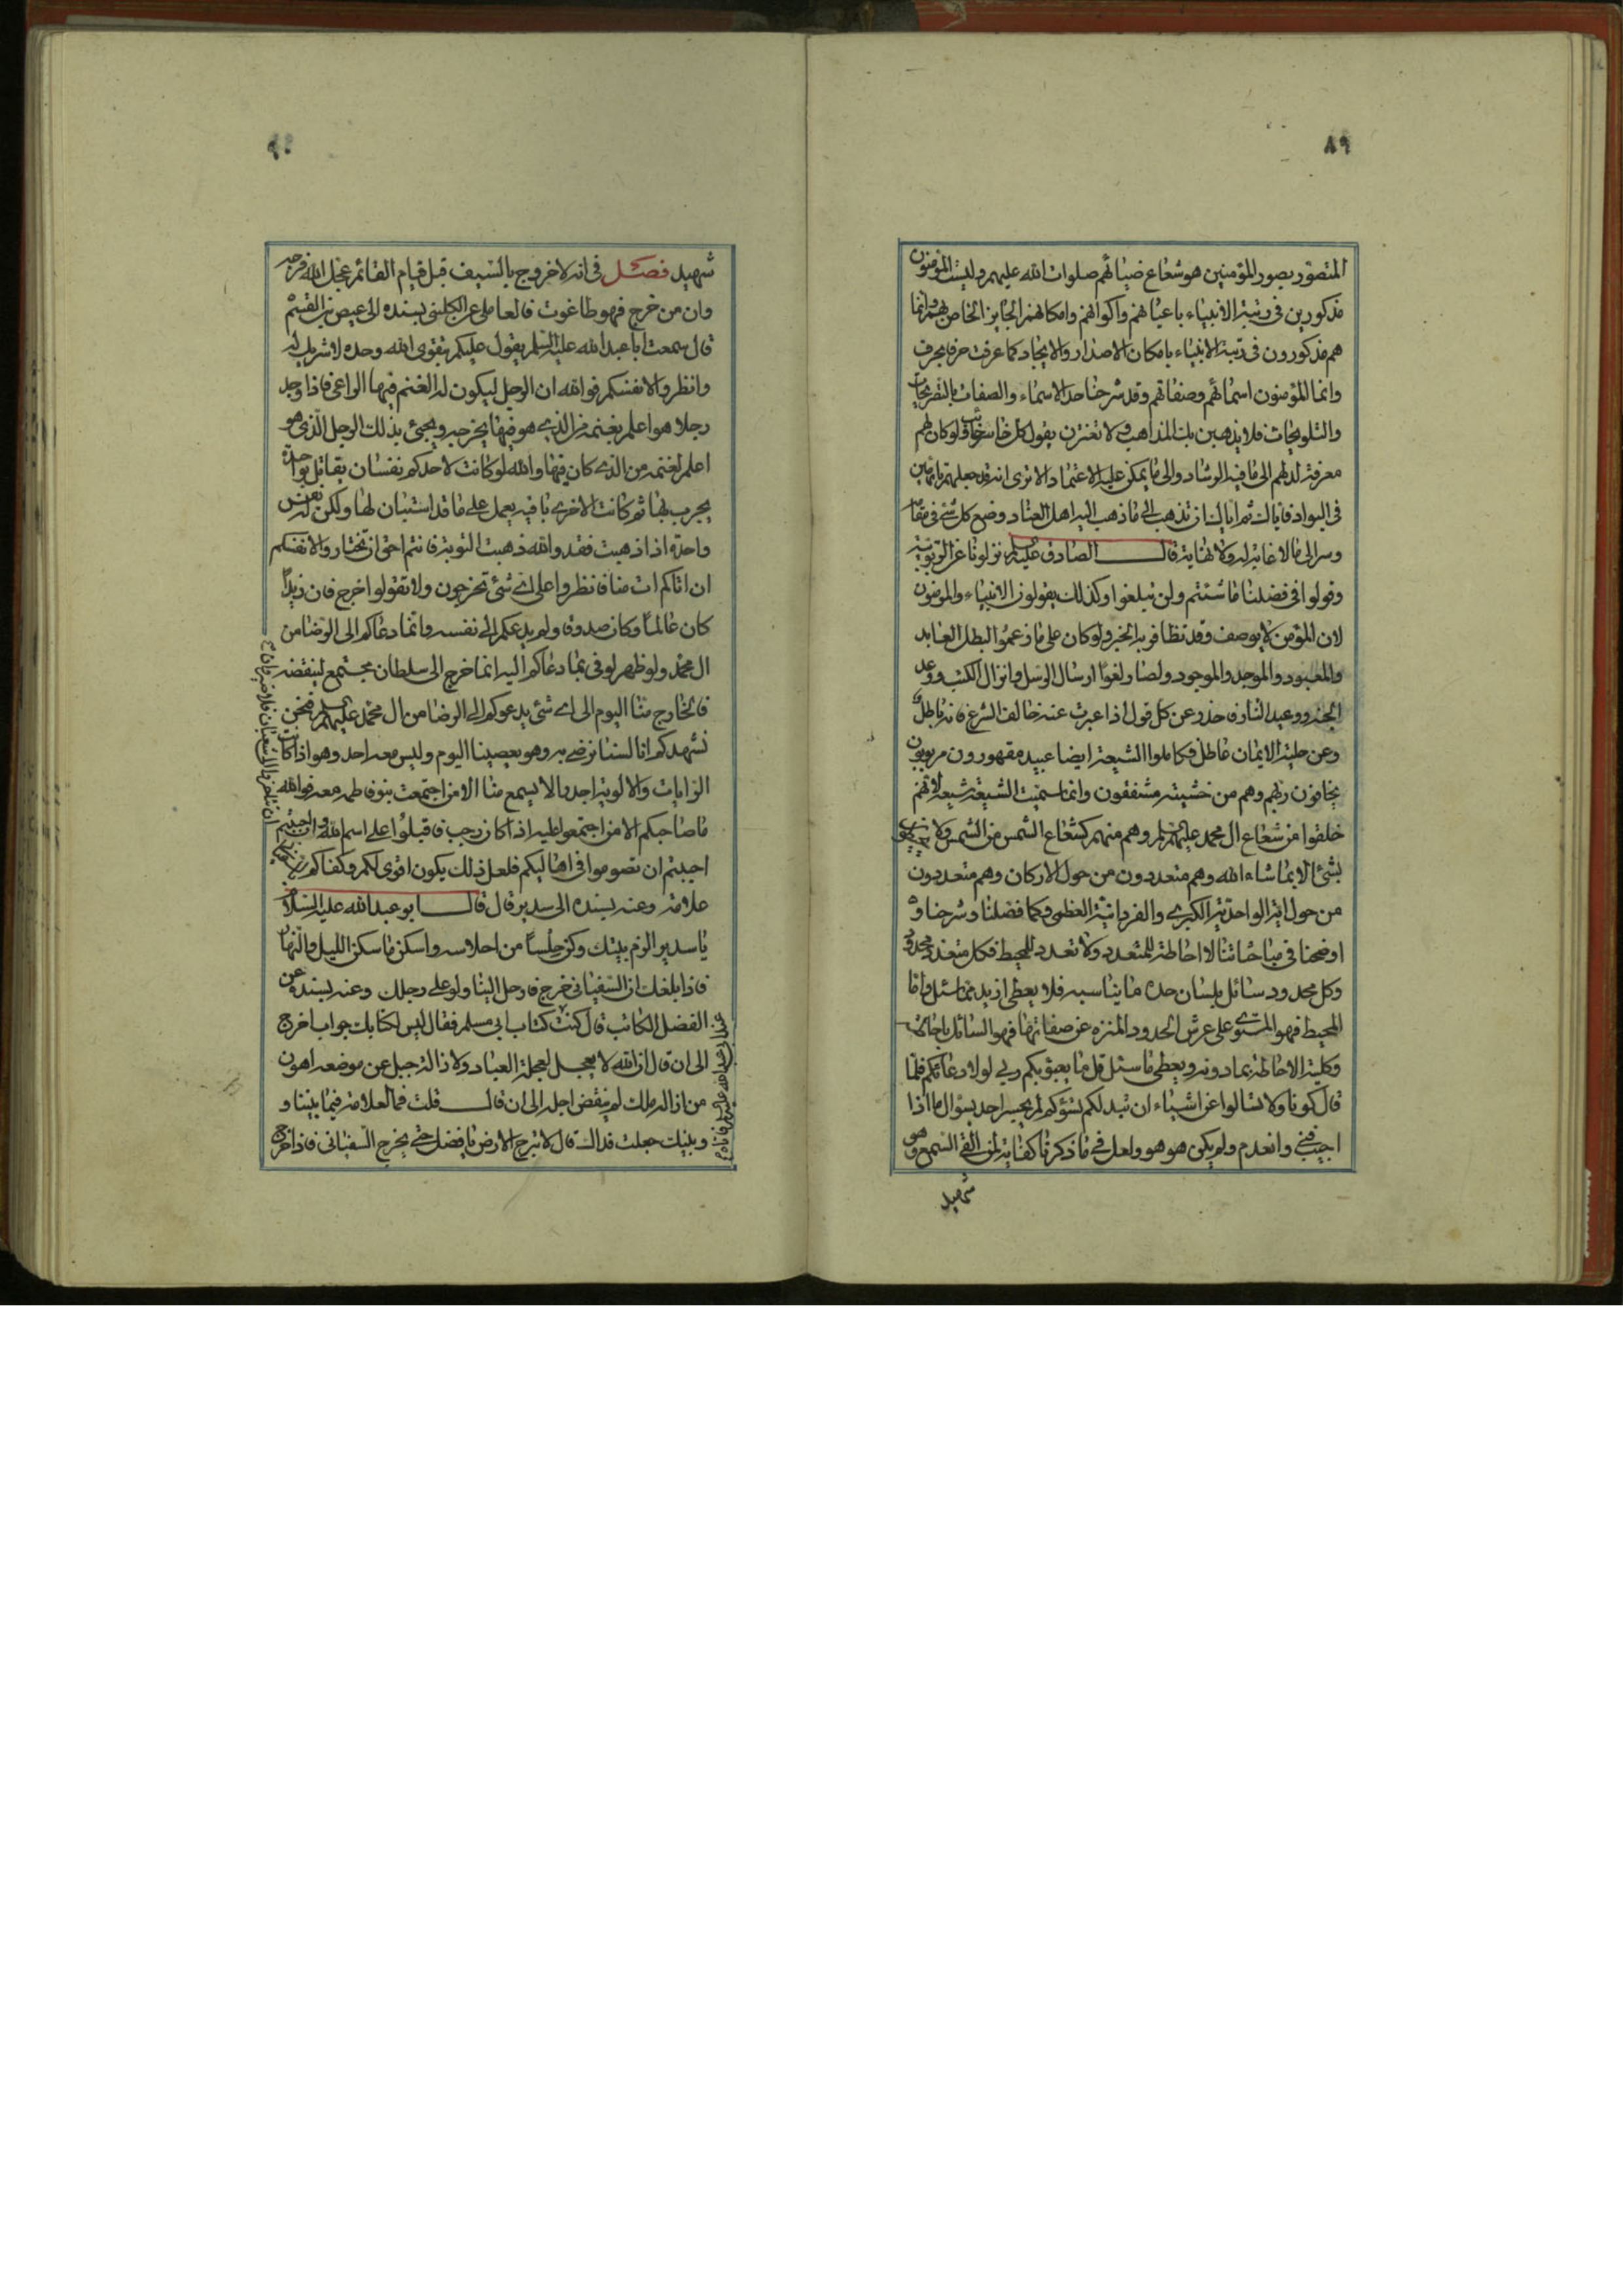 ٨٩
المتصور بصور المؤمنين هو شعاع ضيائهم صلوات الله عليهم وليست المؤمنون
مذكورين في رتبة الانبياء باعيانهم واكوانهم وامكانهم الجايز الخاص بهم وانما
هم مذكورون في رتبة الانبياء بامكان الاصدار والايجاد كما عرفت حرفا بحرف
وانما المؤمنون اسمائهم وصفاتهم وقد شرحنا حد الاسماء والصفات بالتصريحات
والتلويحات فلا يذهبن بك المذاهب ولا تغترن بقول كل خاسر خائب فلو كان لهم
معرفة لدلهم الى ما فيه الرشاد والى ما يمكن عليه الاعتماد الا ترى انه قد جعلهم تائهين
في البواد فاياك ثم اياك ان تذهب الى ما ذهب اليه اهل العناد وضع كل شئ في مقامه
وسر الى ما لا غاية له ولا نهاية قال الصادق عليه السلم نزلونا عن الربوبية
وقولوا في فضلنا ما شئتم ولن تبلغوا وكذلك يقولون الانبياء والمؤمنون
لان المؤمن لا يوصف وقد تظافر به الخبر ولو كان على ما زعموا لبطل العابد
والمعبود والموجد والموجود ولصار لغوا ارسال الرسل وانزال الكتب ووعد
الجنة ووعيد النار فاحذر وعن كل قول اذا عبرت عنه خالف الشرع فانه باطل
وعن حلية الايمان عاطل فكاملوا الشيعة ايضا عبيد مقهورون مربوبون
يخافون ربهم وهم من خشيته مشفقون وانما سميت الشيعة شيعة لانهم
خلقوا من شعاع ال محمد عليهم السلم وهم منهم كشعاع الشمس من الشمس ولا يحيطون
بشئ الا بما شاء الله وهم متعددون من حول الاركان وهم متعددون
من حول اية الواحدية الكبرى والفردانية العظمى وكما فصلنا وشرحنا و
اوضحنا في مباحثاتنا لا احاطة للمتعدد ولا تعدد للمحيط فكل متعدد محدود
وكل محدود سائل بلسان حده ما يناسبه فلا يعطى ازيد مما سئل واما
المحيط فهو المستوى على عرش الحدود المنزه عن صفاتها فهو السائل باحاطته
وكلية الاحاطة بما دونه ويعطى ما سئل قل ما يعبؤ بكم ربي لولا دعائكم فلما
قال كونا ولا تسالوا عن اشياء ان تبد لكم تسؤكم لم يجبه احد بسؤال ما اذا
اجيب فنى وانعدم ولم يكن هو هو ولعل في ما ذكرنا كفاية لمن القى السمع وهو
شهيد
٩٠
شهيد فصل في انه لا خروج بالسيف قبل قيام القائم عجل الله فرجه
وان من خرج فهو طاغوت فالعاملي عن الكليني بسنده الى عيص بن القسم
قال سمعت ابا عبد الله عليه السلم يقول عليكم بتقوى الله وحده لا شريك له
وانظروا لانفسكم فوالله ان الرجل ليكون له الغنم فيها الراعي فاذا وجد
رجلا هو اعلم بغنمه من الذي هو فيها يخرجه ويجئ بذلك الرجل الذي هو
اعلم بغنمه من الذي كان فيها والله لو كانت لاحدكم نفسان يقاتل بواحدة
يجرب بها ثم كانت الاخرى باقية يعمل على ما قد استبان لها ولكن له نفس
واحدة اذا ذهبت فقد والله ذهبت التوبة فانتم احق ان تختاروا لانفسكم
ان اتاكم ات منا فانظروا على اي شئ تخرجون ولا تقولوا خرج فان زيدا
كان عالما وكان صدوقا ولم يدعكم الى نفسه وانما دعاكم الى الرضا من
ال محمد ولو ظهر لوفى بما دعاكم اليه انما خرج الى سلطان مجتمع لينقضه
فالخارج منا اليوم الى اي شئ يدعوكم الى الرضا من ال محمد عليهم السلم فنحن
نشهدكم انا لسنا نرضى به وهو يعصينا اليوم وليس معه احد وهو اذا كانت
الرايات والالوية اجدر الا يسمع منا الا من اجتمعت بنو فاطمه معه فوالله
ما صاحبكم الا من اجتمعوا عليه اذا كان رجب فاقبلوا على اسم الله وان احببتم
ان تتاخروا الى شعبان فلا ضير وان
احببتم ان تصوموا في اهاليكم فلعل ذلك يكون اقوى لكم وكفاكم بالسفياني
علامة وعنه بسنده الى سدير قال قال ابو عبد الله عليه السلام
يا سدير الزم بيتك وكن حلسا من احلاسه واسكن ما سكن الليل والنهار
فاذا بلغك ان السفياني خرج فارحل الينا ولو على رجلك وعنه بسنده عن
الفضل الكاتب قال كنت عند ابي عبد الله عليه السلم فاتاه كتاب ابي مسلم فقال ليس لكتابك جواب اخرج
الى ان قال ان الله لا يعجل لعجلة العباد ولازالة جبل عن موضعه اهون
من ازالة ملك لم ينقض اجله الى ان قال قلت فما العلامة فيما بيننا و
وبينك جعلت فداك قال لا تبرح الارض يا فضل حتى يخرج السفياني فاذا خرج